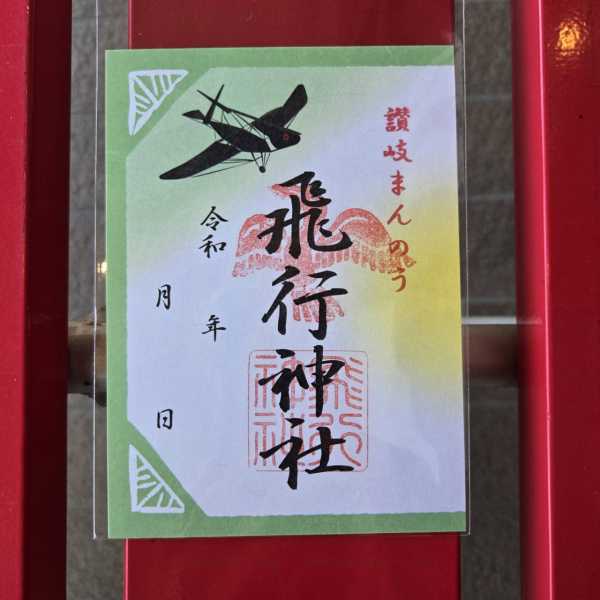 讃岐まんのう
飛行神社
令和 年
月 日
飛行
神社